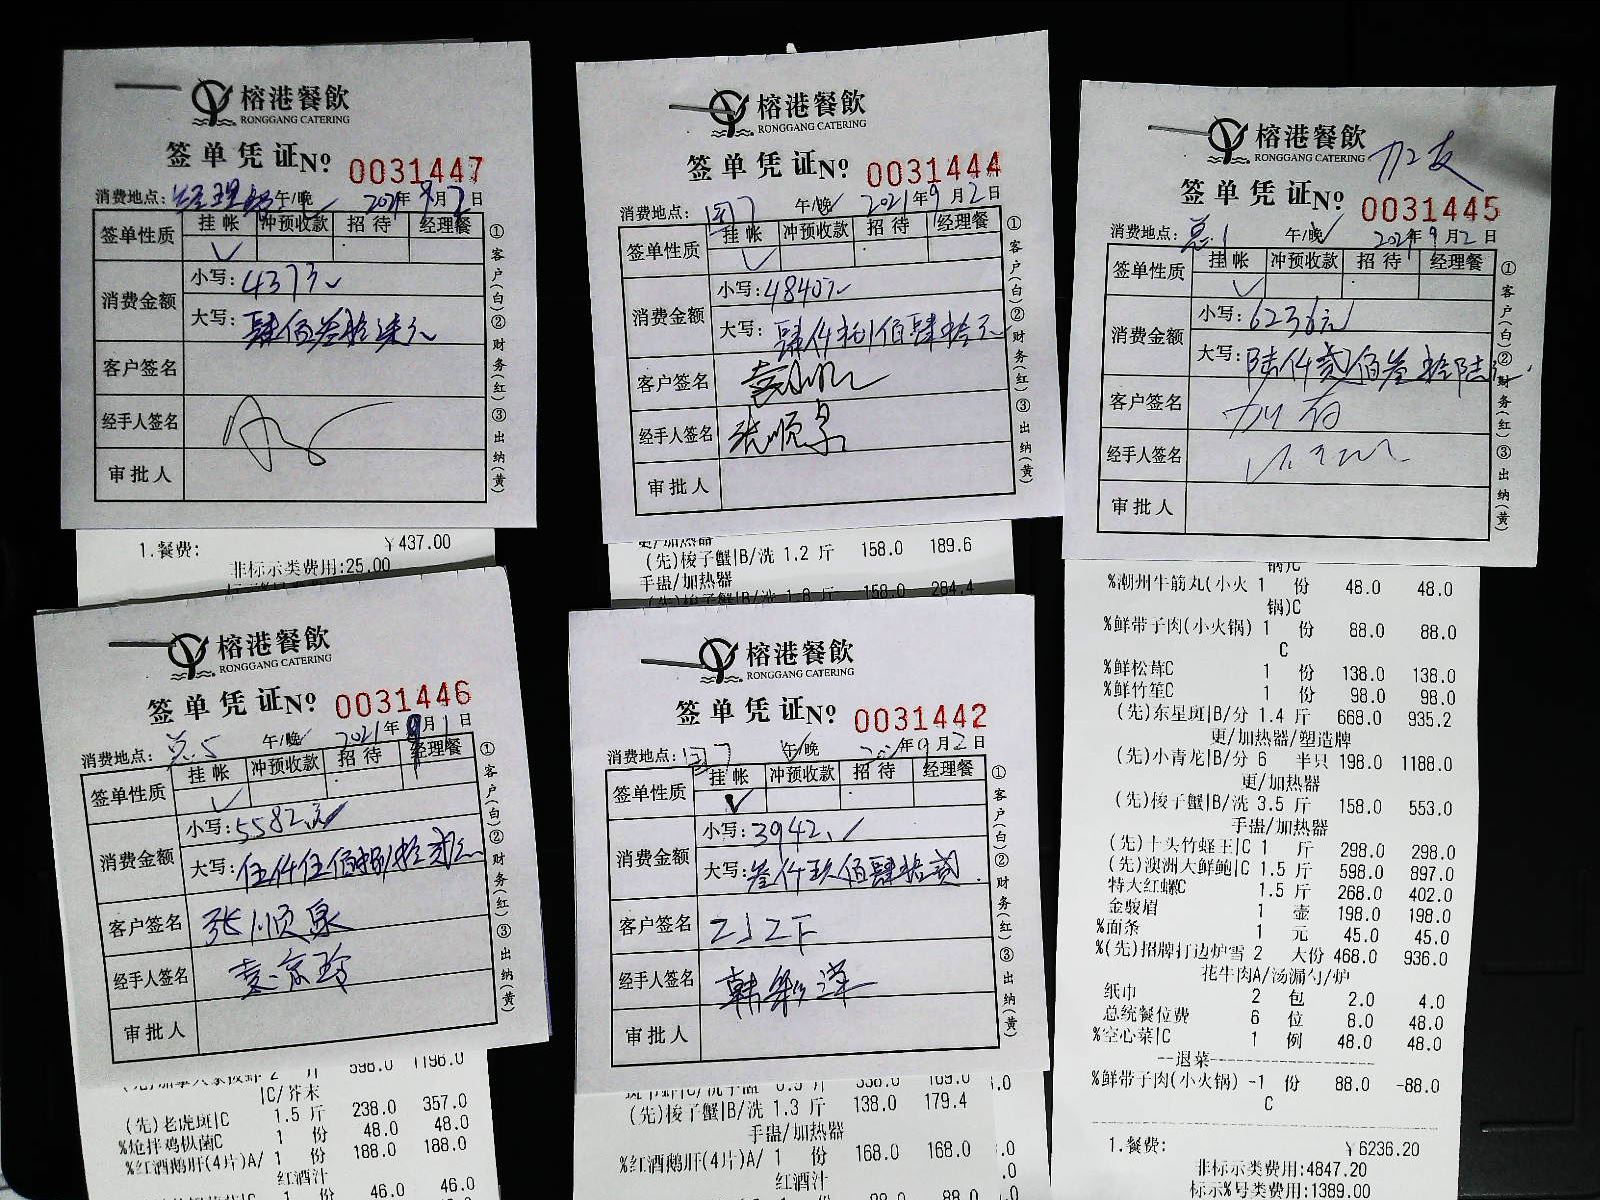 榕港餐飲
RONGGANG CATERING
签单凭证No 0031447
消费地点: 经理 午/晚 2021年9月2日
签单性质 挂帐 冲预收款 招待 经理餐
消费金额 小写: 437元
大写: 肆佰叁拾柒元
客户签名
经手人签名
审批人
①客户(白)②财务(红)③出纳(黄)
1.餐费: ¥437.00
非标示类费用:25.00
榕港餐飲
RONGGANG CATERING
签单凭证No 0031444
消费地点: 午/晚 2021年9月2日
签单性质 挂帐 冲预收款 招待 经理餐
消费金额 小写: 4840元
大写: 肆仟捌佰肆拾元
客户签名
经手人签名 张顺泉
审批人
①客户(白)②财务(红)③出纳(黄)
更/加热器
(先)梭子蟹|B/洗 1.2 斤 158.0 189.6
手盅/加热器
(先)梭子蟹|B/洗 1.8 斤 158.0 284.4
榕港餐飲
RONGGANG CATERING
签单凭证No 0031445
消费地点: 总1 午/晚 2021年9月2日
签单性质 挂帐 冲预收款 招待 经理餐
消费金额 小写: 6236元
大写: 陆仟贰佰叁拾陆元
客户签名
经手人签名
审批人
①客户(白)②财务(红)③出纳(黄)
锅)C
%潮州牛筋丸(小火 1 份 48.0 48.0
锅)C
%鲜带子肉(小火锅) 1 份 88.0 88.0
C
%鲜松茸C 1 份 138.0 138.0
%鲜竹笙C 1 份 98.0 98.0
(先)东星斑|B/分 1.4 斤 668.0 935.2
更/加热器/塑造牌
(先)小青龙|B/分 6 半只 198.0 1188.0
更/加热器
(先)梭子蟹|B/洗 3.5 斤 158.0 553.0
手盅/加热器
(先)十头竹蛏王|C 1 斤 298.0 298.0
(先)澳洲大鲜鲍|C 1.5 斤 598.0 897.0
特大红螺C 1.5 斤 268.0 402.0
金骏眉 1 壶 198.0 198.0
%面条 1 元 45.0 45.0
%(先)招牌打边炉雪 2 大份 468.0 936.0
花牛肉A/汤漏勺/炉
纸巾 2 包 2.0 4.0
总统餐位费 6 位 8.0 48.0
%空心菜|C 1 例 48.0 48.0
--退菜--
%鲜带子肉(小火锅) -1 份 88.0 -88.0
C
1.餐费: ¥6236.20
非标示类费用:4847.20
标示%号类费用:1389.00
榕港餐飲
RONGGANG CATERING
签单凭证No 0031446
消费地点: 总5 午/晚 2021年9月1日
签单性质 挂帐 冲预收款 招待 经理餐
消费金额 小写: 5582元
大写: 伍仟伍佰捌拾贰元
客户签名 张顺泉
经手人签名 袁京玲
审批人
①客户(白)②财务(红)③出纳(黄)
2 斤 598.0 1196.0
|C/芥末
(先)老虎斑|C 1.5 斤 238.0 357.0
%炝拌鸡枞菌C 1 份 48.0 48.0
%红酒鹅肝(4片)A/ 1 份 188.0 188.0
红酒汁
1 份 46.0 46.0
榕港餐飲
RONGGANG CATERING
签单凭证No 0031442
消费地点: 午/晚 2021年9月2日
签单性质 挂帐 冲预收款 招待 经理餐
消费金额 小写: 3942
大写: 叁仟玖佰肆拾贰
客户签名
经手人签名
审批人
①客户(白)②财务(红)③出纳(黄)
(先)梭子蟹|B/洗 1.3 斤 138.0 179.4
手盅/加热器
%红酒鹅肝(4片)A/ 1 份 168.0 168.0
红酒汁
1 份 88.0 88.0